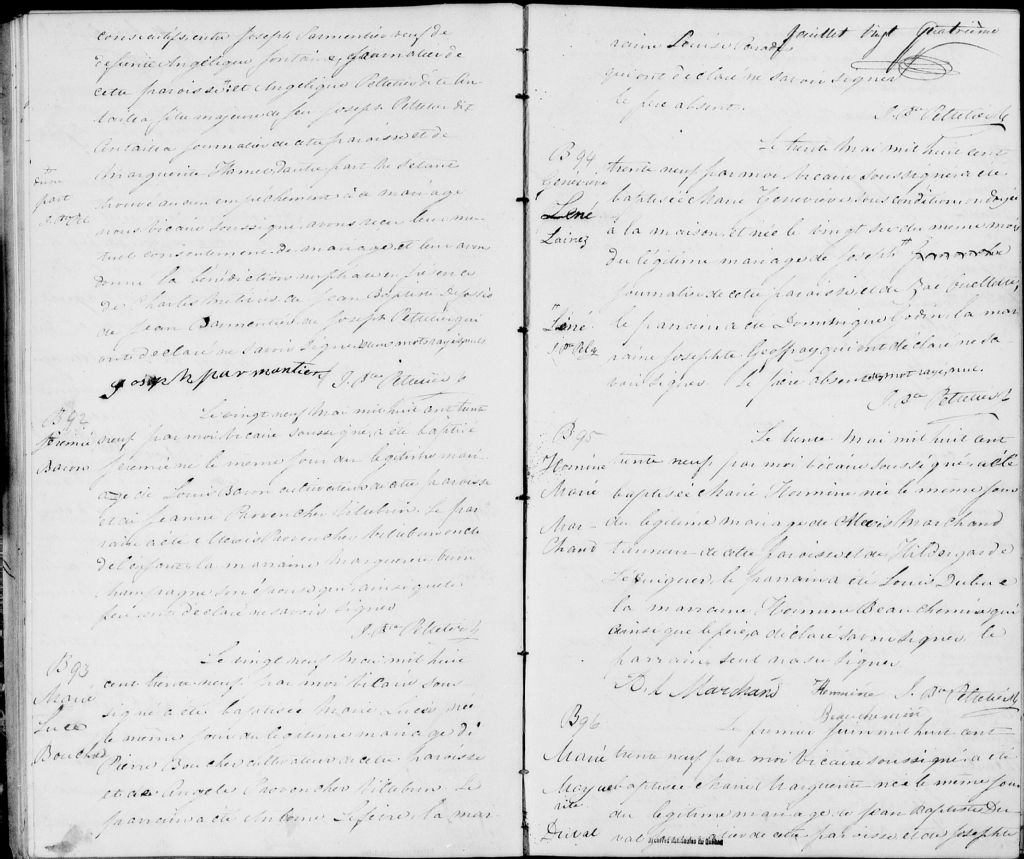 consécutifs, entre Joseph Parmentier veuf de
défunte Angélique Fontaine, journalier de
cette paroisse, et Angélique Pelletier dite An
taillia fille majeure de feu Joseph Pelletier dit
Antaillia journalier de cette paroisse et de
Marguerite Hamel d'autre part ne s'étant
trouvé aucun empêchement à ce mariage
nous vicaire soussigné avons reçu leur mu
tuel consentement de mariage, et leur avons
donné la bénédiction nuptiale en présence
de Charles de Jean Baptiste
de Jean Parmentier de Joseph Pelletier qui
ont déclaré ne savoir signer
joseph parmantier J. Bte Pelletier
B 92
Jérémie
Baron
Le vingt neuf Mai mil huit cent trente
neuf, par moi Vicaire soussigné, a été baptisé
Jérémie né le même jour du légitime mari
age de Louis Baron cultivateur de cette paroisse
et de Jeanne Provencher Villebrun. Le par
rain a été Alexis Provencher Villebrun oncle
de l'enfant, la marraine Marguerite
Champagne soussigné qui ainsi que le
père ont déclaré ne savoir signer
J. Bte Pelletier
B 93
Marie
Luce
Boucher
Le vingt neuf Mai mil huit
cent trente neuf, par moi Vicaire sous
signé a été baptisée Marie Luce née
le même jour du légitime mariage de
Pierre Boucher cultivateur de cette paroisse
et de Angèle Provencher Villebrun. Le
parrain a été Antoine Lefebvre, la mar
Juillet Vingt Quatrième
raine Louise
qui ont déclaré ne savoir signer
le père absent.
J. Bte Pelletier
B 94
Geneviève
Lainez
Le trente Mai mil huit cent
trente neuf par moi Vicaire soussigné a été
baptisée Marie Geneviève sous condition ondoyée
à la maison, et née le vingt six du même mois
du légitime mariage de Joseph
journalier de cette paroisse et de Zoé Ouellette,
le parrain a été Dominique Godin la mar
raine Josephte Geoffroy qui ont déclaré ne sa
voir signer. Le père absent un mot rayé nul.
J. Bte Pelletier
B 95
Hermine
Marie
Mar-
chand
Le trente Mai mil huit cent
trente neuf, par moi vicaire soussigné a été
baptisée Marie Hermine née le même jour
du légitime mariage de Alexis Marchand
tanneur de cette paroisse et de Hildegarde
le parrain a été Louis Dubuc
la marraine Hermine Beauchemin qui
ainsi que le père, a déclaré savoir signer le
parrain seul n'a su signer.
Marchand Hermine J. Bte Pelletier
Beauchemin
B 96
Marie
Margue
rite
Duval
Le premier Juin mil huit cent
trente neuf par moi Vicaire soussigné a été
baptisée Marie Marguerite née le même jour
du légitime mariage de Jean Baptiste Du
val journalier de cette paroisse, et de Josephte
Archives nationales du Québec